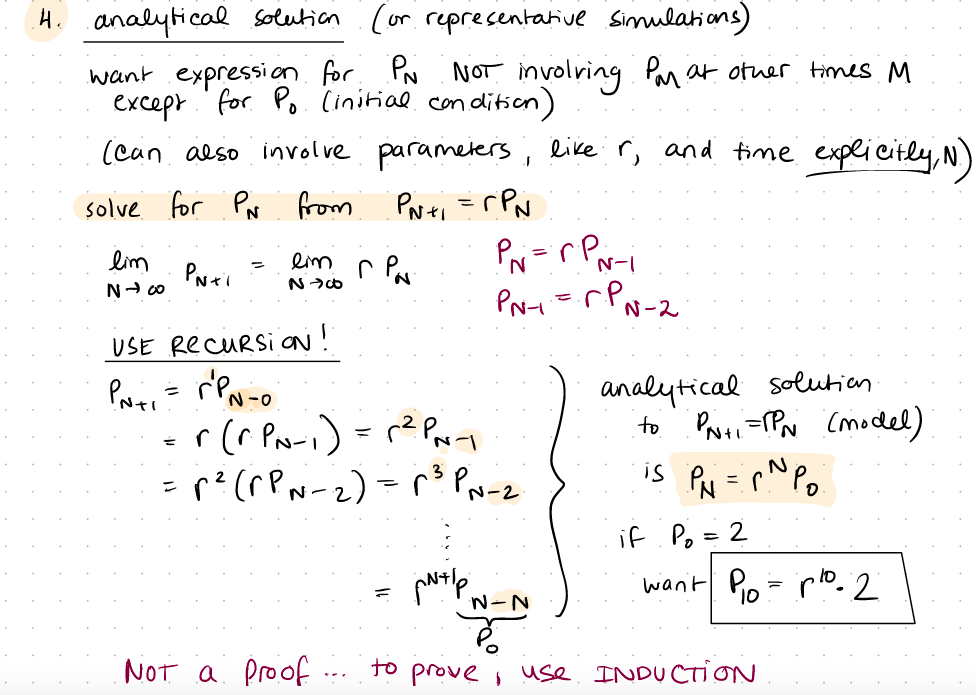 4. analytical solution (or representative simulations)
want expression for P_N NOT involving P_M at other times M
except for P_0 (initial condition)
(can also involve parameters, like r, and time explicitly, N)
solve for P_N from P_{N+1} = rP_N
lim N→∞ P_{N+1} = lim N→∞ r P_N
P_N = r P_{N-1}
P_{N-1} = r P_{N-2}
USE RECURSION!
P_{N+1} = r^1 P_{N-0}
= r (r P_{N-1}) = r^2 P_{N-1}
= r^2 (r P_{N-2}) = r^3 P_{N-2}
⋮
= r^{N+1} P_{N-N}
P_0
analytical solution
to P_{N+1} = rP_N (model)
is P_N = r^N P_0
if P_0 = 2
want P_10 = r^10 · 2
NOT a proof ... to prove, use INDUCTION